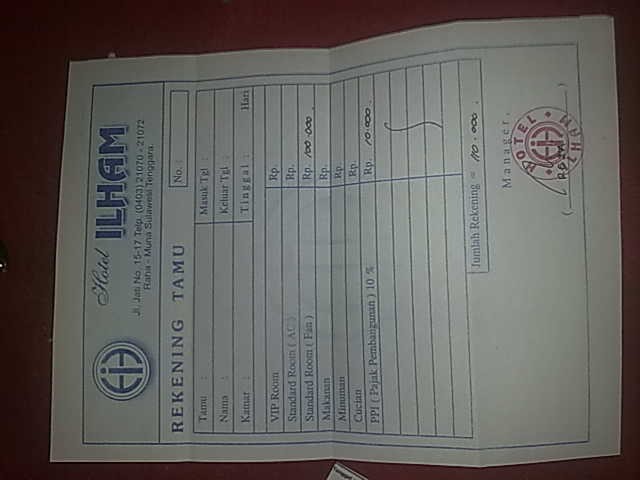 Hotel
ILHAM
Jl. Jati No. 15-17 Telp. (0403) 21070 - 21072
Raha - Muna Sulawesi Tenggara.
REKENING TAMU
No. :
Tamu :
Masuk Tgl :
Nama :
Keluar Tgl :
Kamar :
Tinggal : Hari
VIP Room Rp.
Standard Room ( AC ) Rp.
Standard Room ( Fan ) Rp. 100.000.
Makanan Rp.
Minuman Rp.
Cucian Rp.
PPI ( Pajak Pembangunan ) 10 % Rp. 10.000.
Jumlah Rekening = 110.000.
Manager,
HOTEL
ILHAM